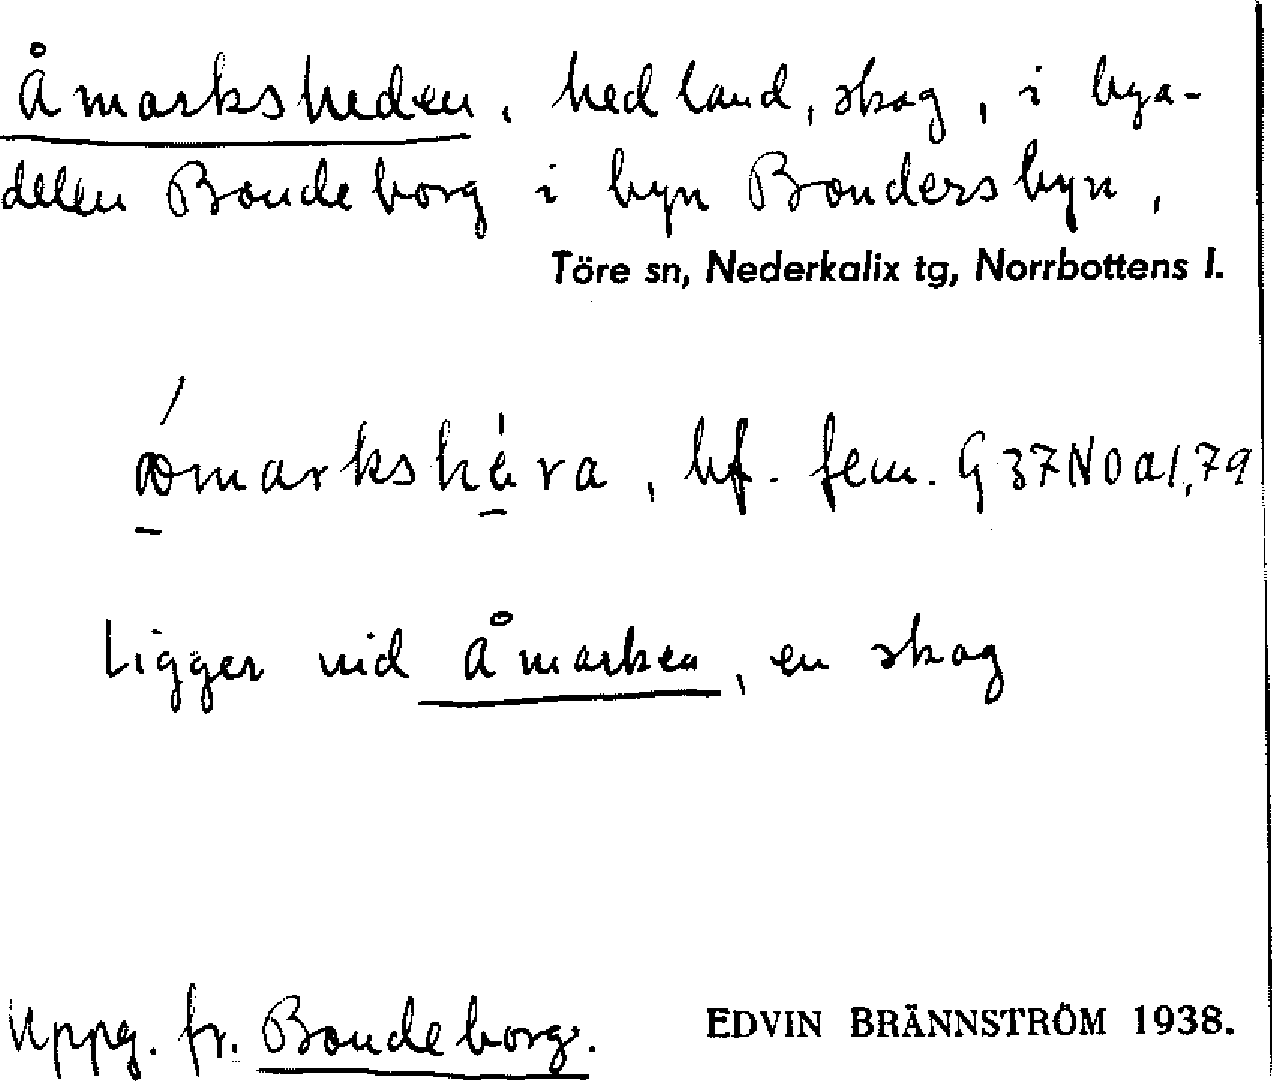 Åmarksheden, hedland, skog, i bya-
delen Bondeborg i byn Bondersbyn,
Töre sn, Nederkalix tg, Norrbottens l.
, bf. fem. G37N0a1,79
Ligger vid Åmarken, en skog
Uppg. fr. Bondeborg. EDVIN BRÄNNSTRÖM 1938.